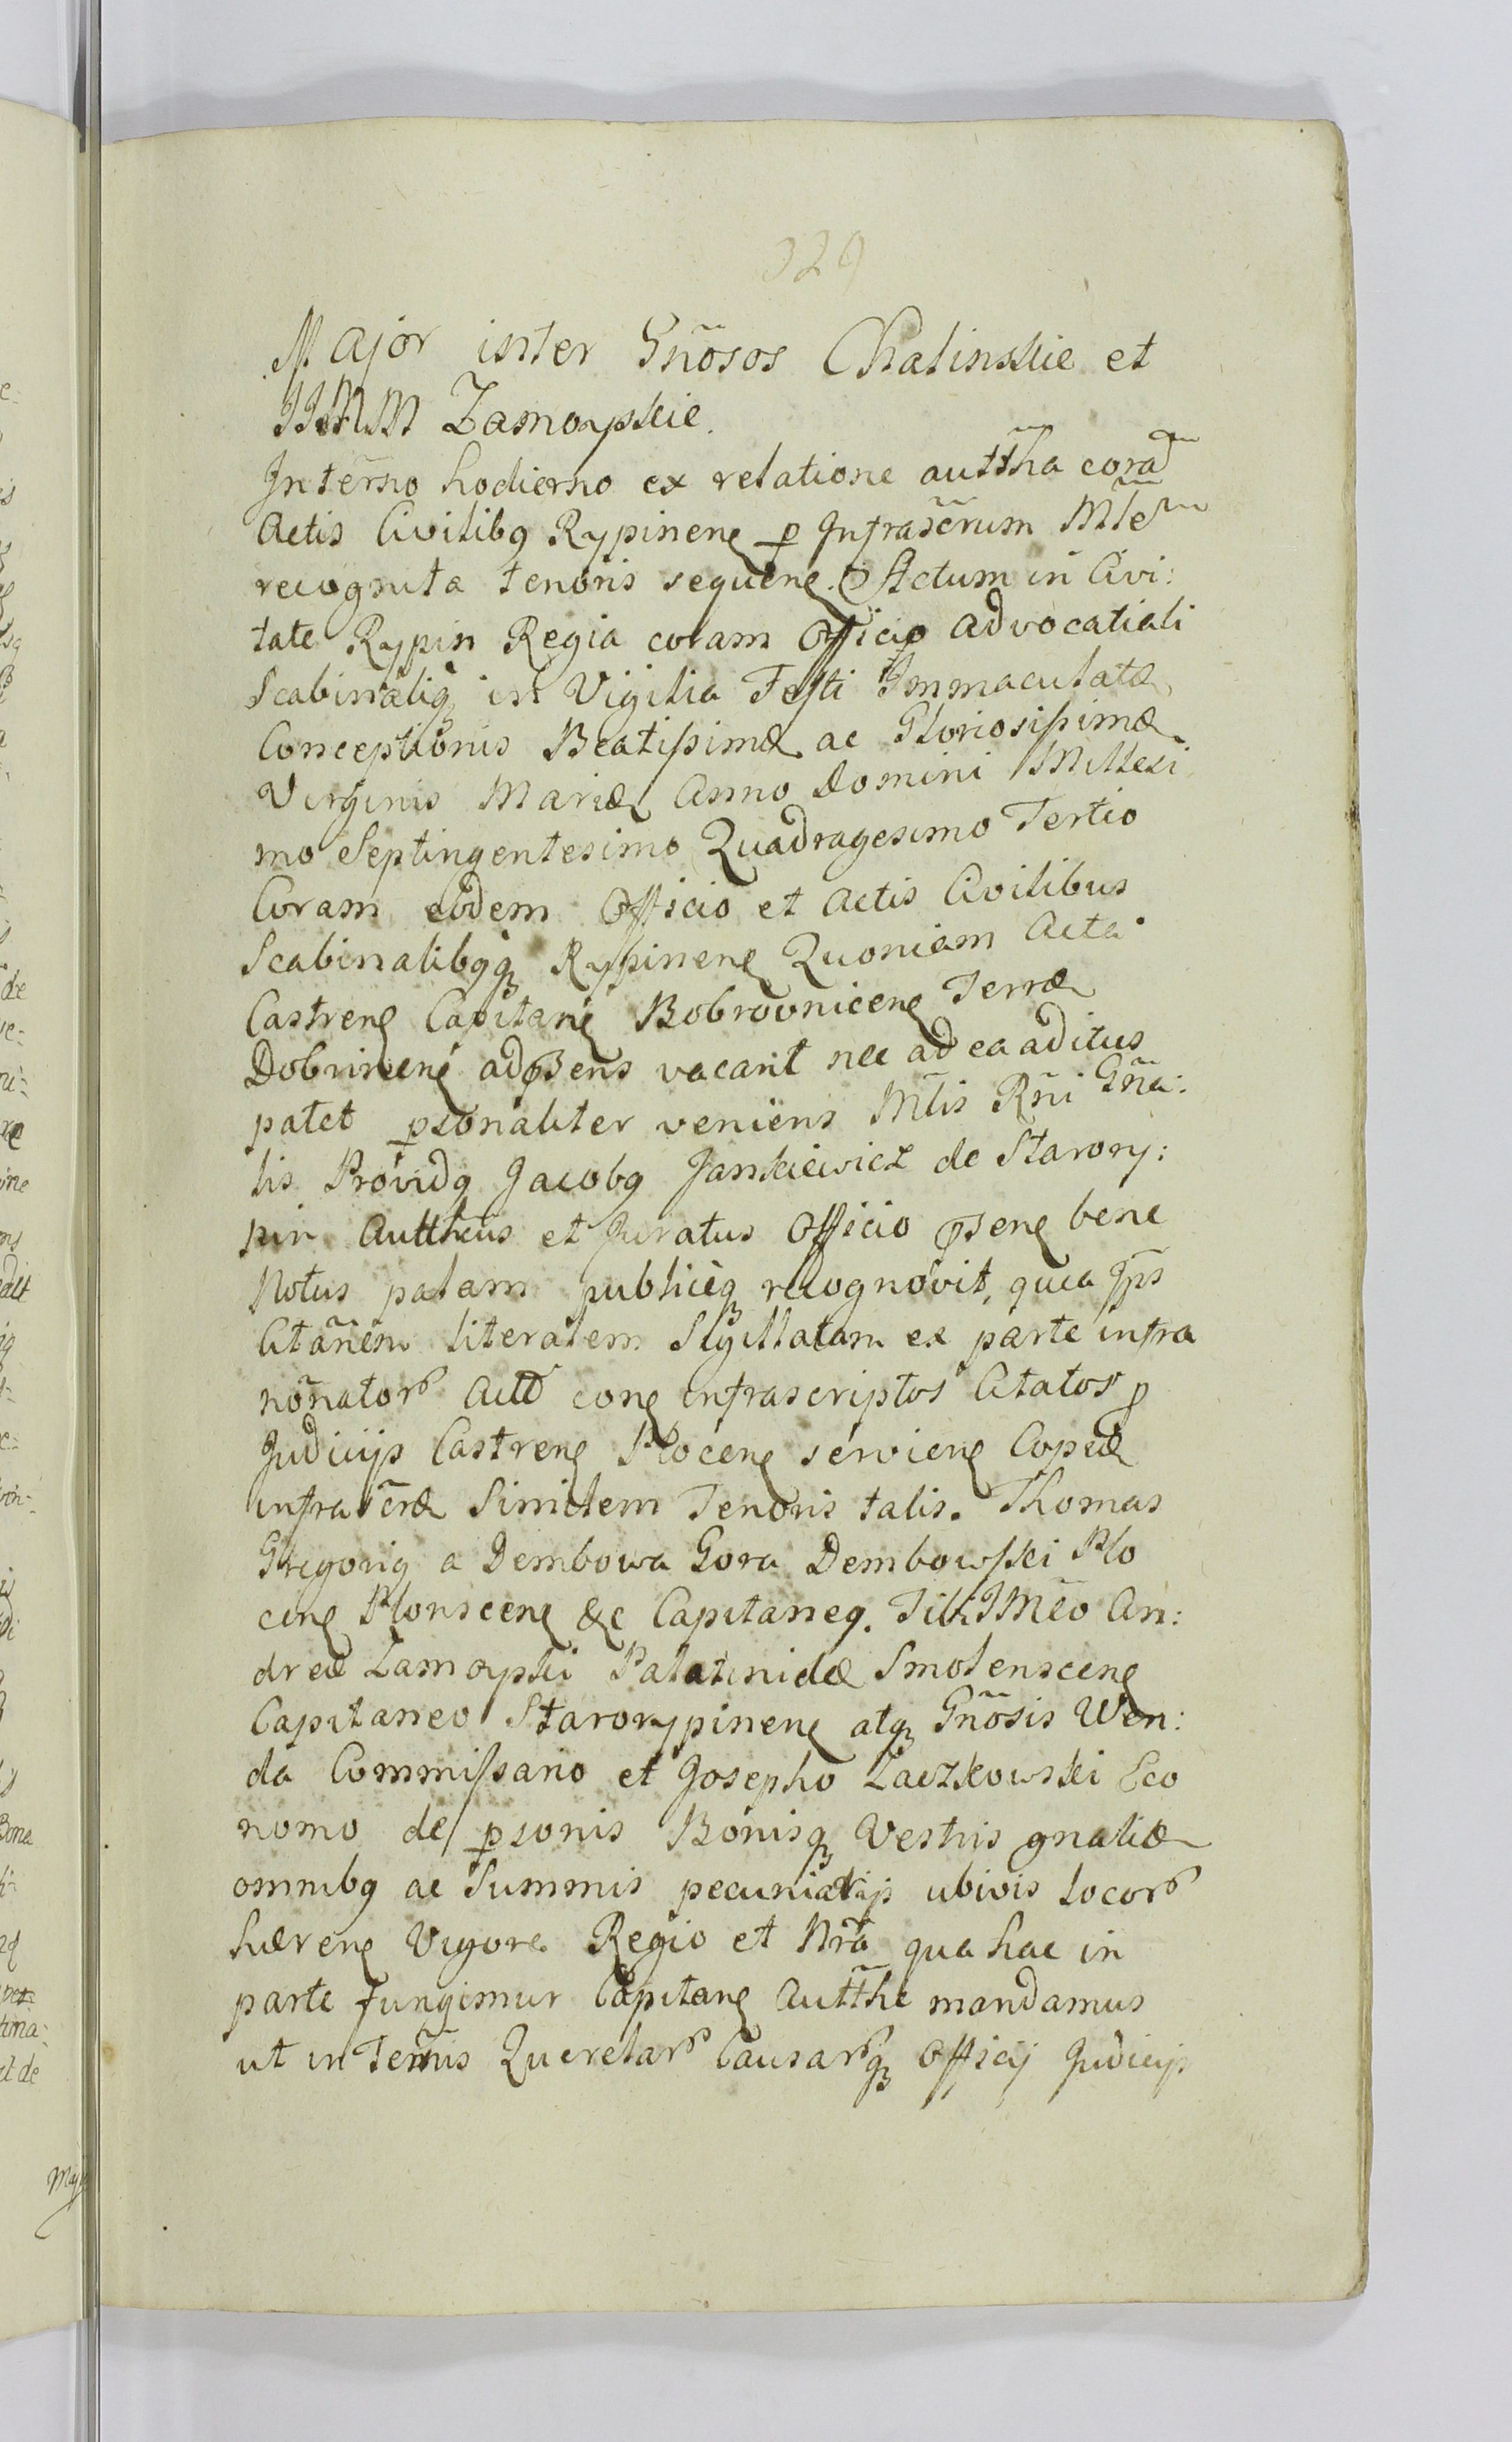 329
Major inter Gn̄osos Chalinskie et
IIMM Zamoyskie.
In term̄no hodierno ex relatione auttħa corā
Actis Civilibq Rypinenẽ p Infrascr̄um Mlēm
recognita tenoris sequenẽ. Actum in Civi:
tate Rypin Regia coram Officio advocatiali
Scabinaliq in Vigilia Festi Immaculatæ
Conceptionis Beatissimæ ac Gloriosissimæ
Virginis Mariæ Anno Domini Millesi
mo Septingentesimo Quadragesimo Tertio
Coram eodem Officio et Actis Civilibus
Scabinalibqq Rypinenẽ Quoniam Acta
Castrenẽ Capitanẽ Bobrovnicenẽ Terræ
Dobrinenẽ adpsens vacant nec ad ea aditus
patet psonaliter veniens Ml̄is Rn̄i Gn̄a:
lis Providq Jacobq Jankiewicz de Starory:
pin Auttħus et Juratus Officio psenẽ bene
Notus palam publiceq recognovit, quia Ips
Citan̄em literalem Sigillatam ex parte infra
non̄ator Act̄ conẽ infrascriptos Citatos p
Judicijs Castrenẽ Plocenẽ servienẽ Copiæ
infrascr̄æ Similem Tenoris talis. Thomas
Gregoriq a Dembowa Gora Dembowski Plo
cenẽ Plonscenẽ &c Capitaneq. Tibi IMḡco An:
dreæ Zamoyski Palatinidæ Smolenscenẽ
Capitaneo Starorypinenẽ atq Gn̄osis Wen:
da Commissario et Josepho Laczkowski Eco
nomo de psonis Bonisq Vestris gnaliæ
omnibq ac Summis pecuniarijs ubivis locor
hærenẽ Vigore Regio et Nr̄a qua hac in
parte fungimur Capitanẽ Auttħe mandamus
ut in Term̄is Querelar Causarq Officij Judicijs